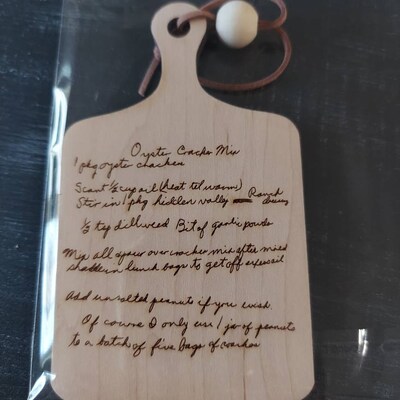 Oyster Cracker Mix
1 pkg oyster crackers
Scant ½ cup oil (heat til warm)
Stir in 1 pkg hidden vally — Ranch
dressing
½ tsp dillweed Bit of garlic powder
Mix all & pour over cracker mix after mixed
shake in lunch bags to get off excess oil
Add unsalted peanuts if you wish.
Of course I only use 1 jar of peanuts
to a batch of five bags of crackers